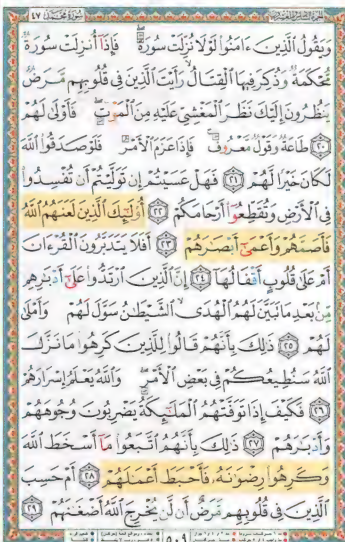 سورة محمد ٤٧
وَيَقُولُ الَّذِينَ ءَامَنُوا لَوْلَا نُزِّلَتْ سُورَةٌ ۖ فَإِذَا أُنزِلَتْ سُورَةٌ
مُّحْكَمَةٌ وَذُكِرَ فِيهَا الْقِتَالُ ۙ رَأَيْتَ الَّذِينَ فِي قُلُوبِهِم مَّرَضٌ
يَنظُرُونَ إِلَيْكَ نَظَرَ الْمَغْشِيِّ عَلَيْهِ مِنَ الْمَوْتِ ۖ فَأَوْلَىٰ لَهُمْ
﴿٢٠﴾ طَاعَةٌ وَقَوْلٌ مَّعْرُوفٌ ۚ فَإِذَا عَزَمَ الْأَمْرُ فَلَوْ صَدَقُوا اللَّهَ
لَكَانَ خَيْرًا لَّهُمْ ﴿٢١﴾ فَهَلْ عَسَيْتُمْ إِن تَوَلَّيْتُمْ أَن تُفْسِدُوا
فِي الْأَرْضِ وَتُقَطِّعُوا أَرْحَامَكُمْ ﴿٢٢﴾ أُولَٰئِكَ الَّذِينَ لَعَنَهُمُ اللَّهُ
فَأَصَمَّهُمْ وَأَعْمَىٰ أَبْصَارَهُمْ ﴿٢٣﴾ أَفَلَا يَتَدَبَّرُونَ الْقُرْءَانَ
أَمْ عَلَىٰ قُلُوبٍ أَقْفَالُهَا ﴿٢٤﴾ إِنَّ الَّذِينَ ارْتَدُّوا عَلَىٰ أَدْبَارِهِم
مِّن بَعْدِ مَا تَبَيَّنَ لَهُمُ الْهُدَى ۙ الشَّيْطَانُ سَوَّلَ لَهُمْ وَأَمْلَىٰ
لَهُمْ ﴿٢٥﴾ ذَٰلِكَ بِأَنَّهُمْ قَالُوا لِلَّذِينَ كَرِهُوا مَا نَزَّلَ
اللَّهُ سَنُطِيعُكُمْ فِي بَعْضِ الْأَمْرِ ۖ وَاللَّهُ يَعْلَمُ إِسْرَارَهُمْ
﴿٢٦﴾ فَكَيْفَ إِذَا تَوَفَّتْهُمُ الْمَلَائِكَةُ يَضْرِبُونَ وُجُوهَهُمْ
وَأَدْبَارَهُمْ ﴿٢٧﴾ ذَٰلِكَ بِأَنَّهُمُ اتَّبَعُوا مَا أَسْخَطَ اللَّهَ
وَكَرِهُوا رِضْوَانَهُ فَأَحْبَطَ أَعْمَالَهُمْ ﴿٢٨﴾ أَمْ حَسِبَ
الَّذِينَ فِي قُلُوبِهِم مَّرَضٌ أَن لَّن يُخْرِجَ اللَّهُ أَضْغَانَهُمْ ﴿٢٩﴾
٥٠٩